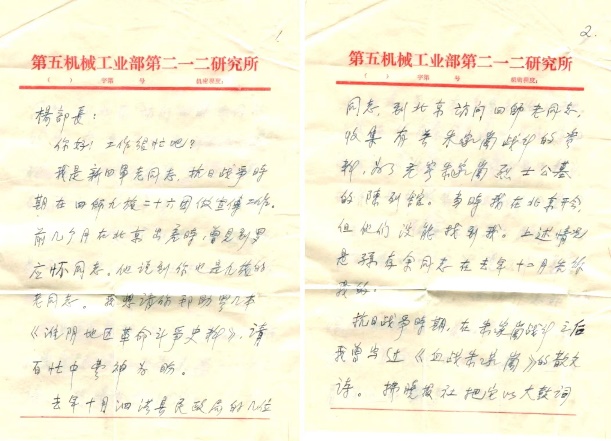 1
第五机械工业部第二一二研究所
( ) 字第 号
杨部长:
你好!工作很忙吧?
我是新四军老同志,抗日战争时
期在四师九旅二十六团做宣传工作。
前几个月在北京出差时,曾见到罗
应怀同志。他说到你也是九旅的
老同志。我想请你帮助 几本
《淮阴地区革命斗争史料》,请
百忙中费神为盼。
去年十月泗洪县民政局的几位
2.
第五机械工业部第二一二研究所
( ) 字第 号
同志,到北京访问四师老同志,
收集有关朱家岗战斗的资
料,为了充实朱家岗烈士公墓
的陈列馆。当时我在北京开会,
但他们没能找到我。上述情况
是 同志在去年十二月告诉
我的。
抗日战争时期,在朱家岗战斗之后
我曾写过《血战朱家岗》的散文
诗。拂晓报社把它以大鼓词